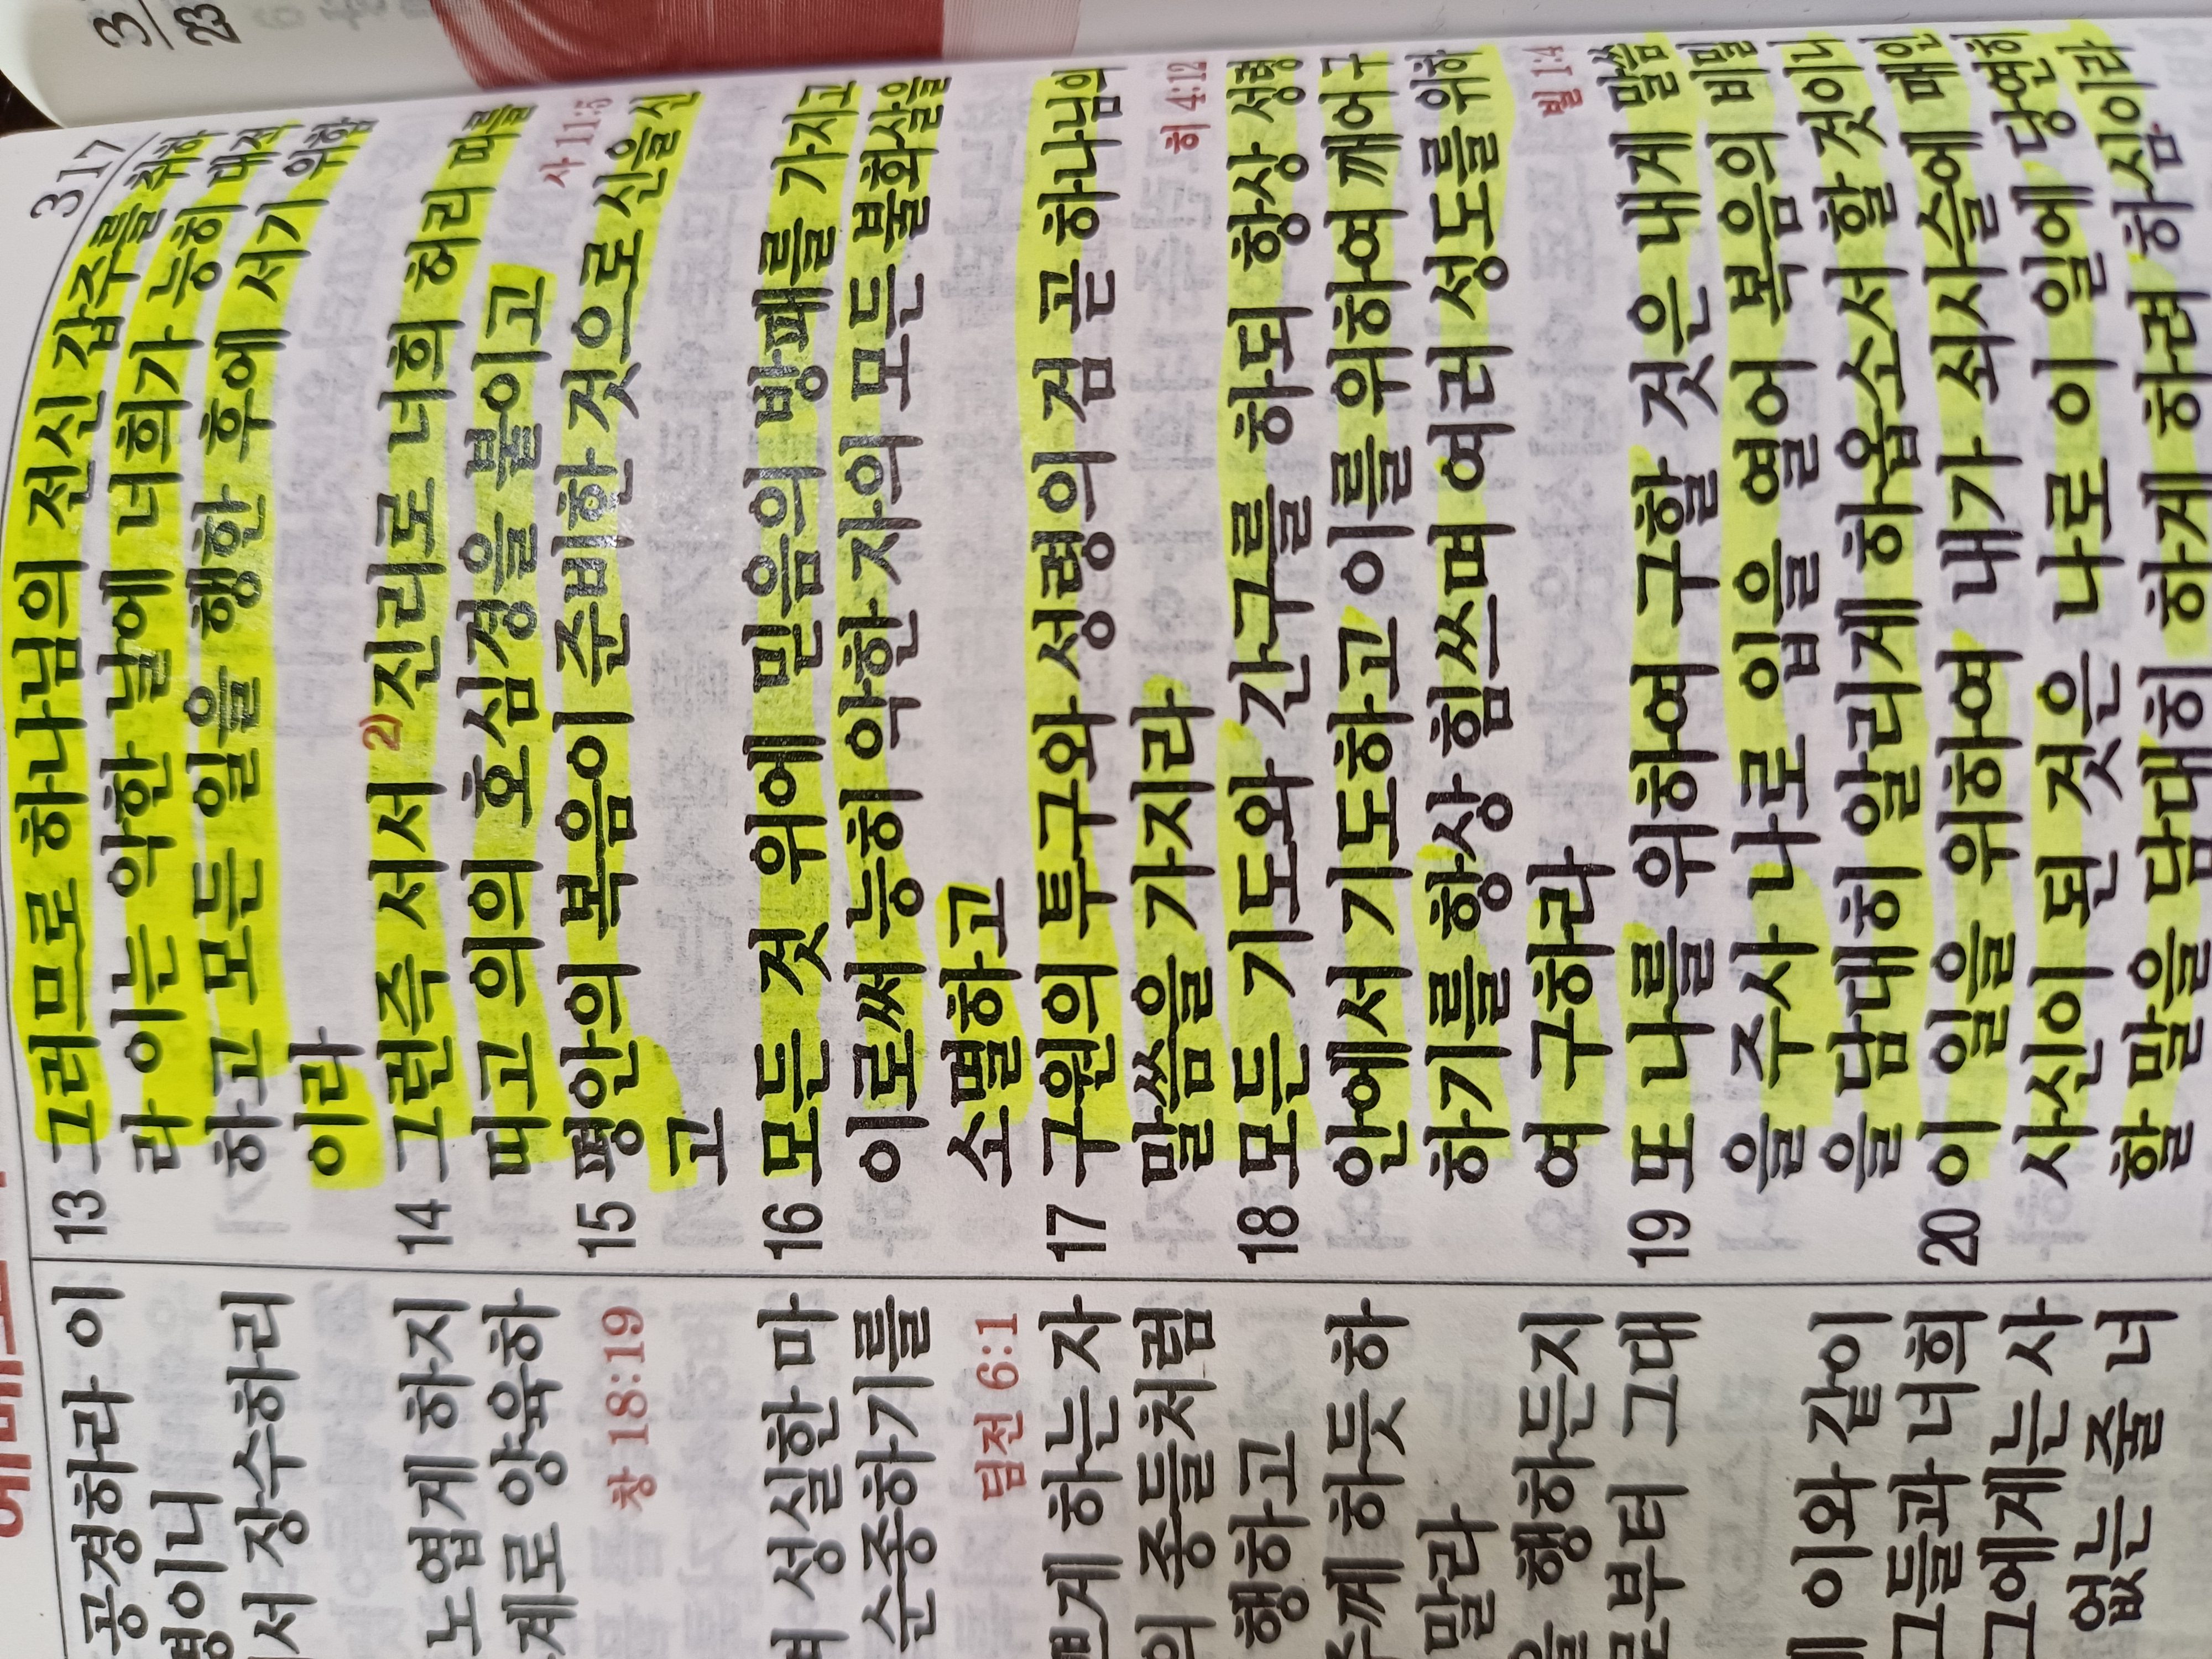 3
23
317
공경하라 이
명이니
서 장수하리
노엽게 하지
계로 양육하
창 18:19
성실한 마
순종하기를
딤전 6:1
쁘게 하는 자
의 종들처럼
행하고
께 하듯 하
말라
행하든지
로부터 그대
이와 같이
그들과 너희
그에게는 사
없는 줄 너
13 그러므로 하나님의 전신 갑주를 취하
라 이는 악한 날에 너희가 능히 대적
하고 모든 일을 행한 후에 서기 위함
이라
14 그런즉 서서 2)진리로 너희 허리 띠를
띠고 의의 호심경을 붙이고
사 11:5
15 평안의 복음이 준비한 것으로 신을 신
고
16 모든 것 위에 믿음의 방패를 가지고
이로써 능히 악한 자의 모든 불화살을
소멸하고
17 구원의 투구와 성령의 검 곧 하나님의
말씀을 가지라
히 4:12
18 모든 기도와 간구를 하되 항상 성령
안에서 기도하고 이를 위하여 깨어 구
하기를 항상 힘쓰며 여러 성도를 위하
여 구하라
빌 1:4
19 또 나를 위하여 구할 것은 내게 말씀
을 주사 나로 입을 열어 복음의 비밀
을 담대히 알리게 하옵소서 할 것이니
20 이 일을 위하여 내가 쇠사슬에 매인
사신이 된 것은 나로 이 일에 당연히
할 말을 담대히 하게 하려 하심이라